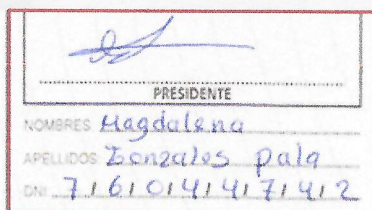 PRESIDENTE
NOMBRES Magdalena
APELLIDOS Gonzales Pala
DNI 7 1 6 0 4 4 7 4 2